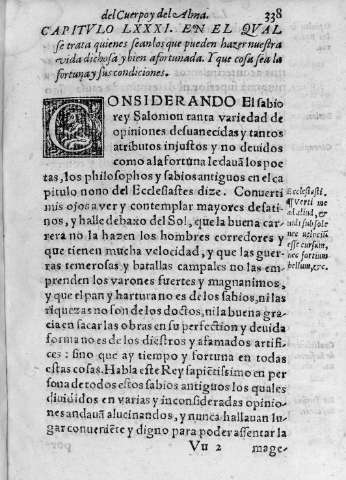 del Cuerpo y del Alma. 338
CAPITVLO LXXXI. EN EL QVAL
se trata quienes sean los que pueden hazer nuestra
vida dichosa y bien afortunada. Y que cosa sea la
fortuna y sus condiciones.
CONSIDERANDO El sabio
rey Salomon tanta variedad de
opiniones desuanecidas y tantos
atributos injustos y no deuidos
como a la fortũna le dauã los poe
tas, los philosophos y sabios antiguos en el ca
pitulo nono del Ecclesiastes dize. Conuerti
mis ojos a ver y contemplar mayores desati-
nos, y halle debaxo del Sol, que la buena car-
rera no la hazen los hombres corredores y
que tienen mucha velocidad, y que las guer-
ras temerosas y batallas campales no las em-
prenden los varones fuertes y magnanimos,
y que el pan y hartura no es de los sabios, ni las
riquezas no son de los doctos, ni la buena gra-
cia en sacar las obras en su perfection y deuida
forma no es de los diestros y afamados artifi-
ces: sino que ay tiempo y fortuna en todas
estas cosas. Habla este Rey sapiẽtissimo en per
sona de todos estos sabios antiguos los quales
diuididos en varias y inconsideradas opinio-
nes andauã alucinandos, y nunca hallauan lu-
gar conueniẽte y digno para poder assentar la
Vu 2 mage-
Ecclesiasti.
¶ Verti me
ad aliud, &
uidi sub sole
nec velociũ
esse cursum,
nec fortium
bellum, &c.